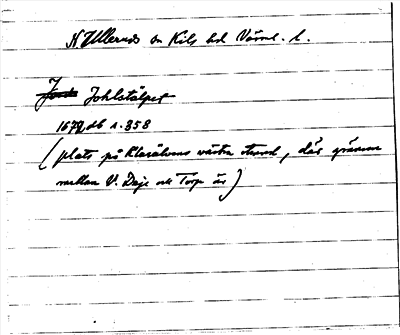 N Ullereds sn Kils hd Värml. l.
Johlstålpet
1679 db s. 358
(plats på Klarälvens västra strand, där gränsen
mellan V. Deje och Torp är)